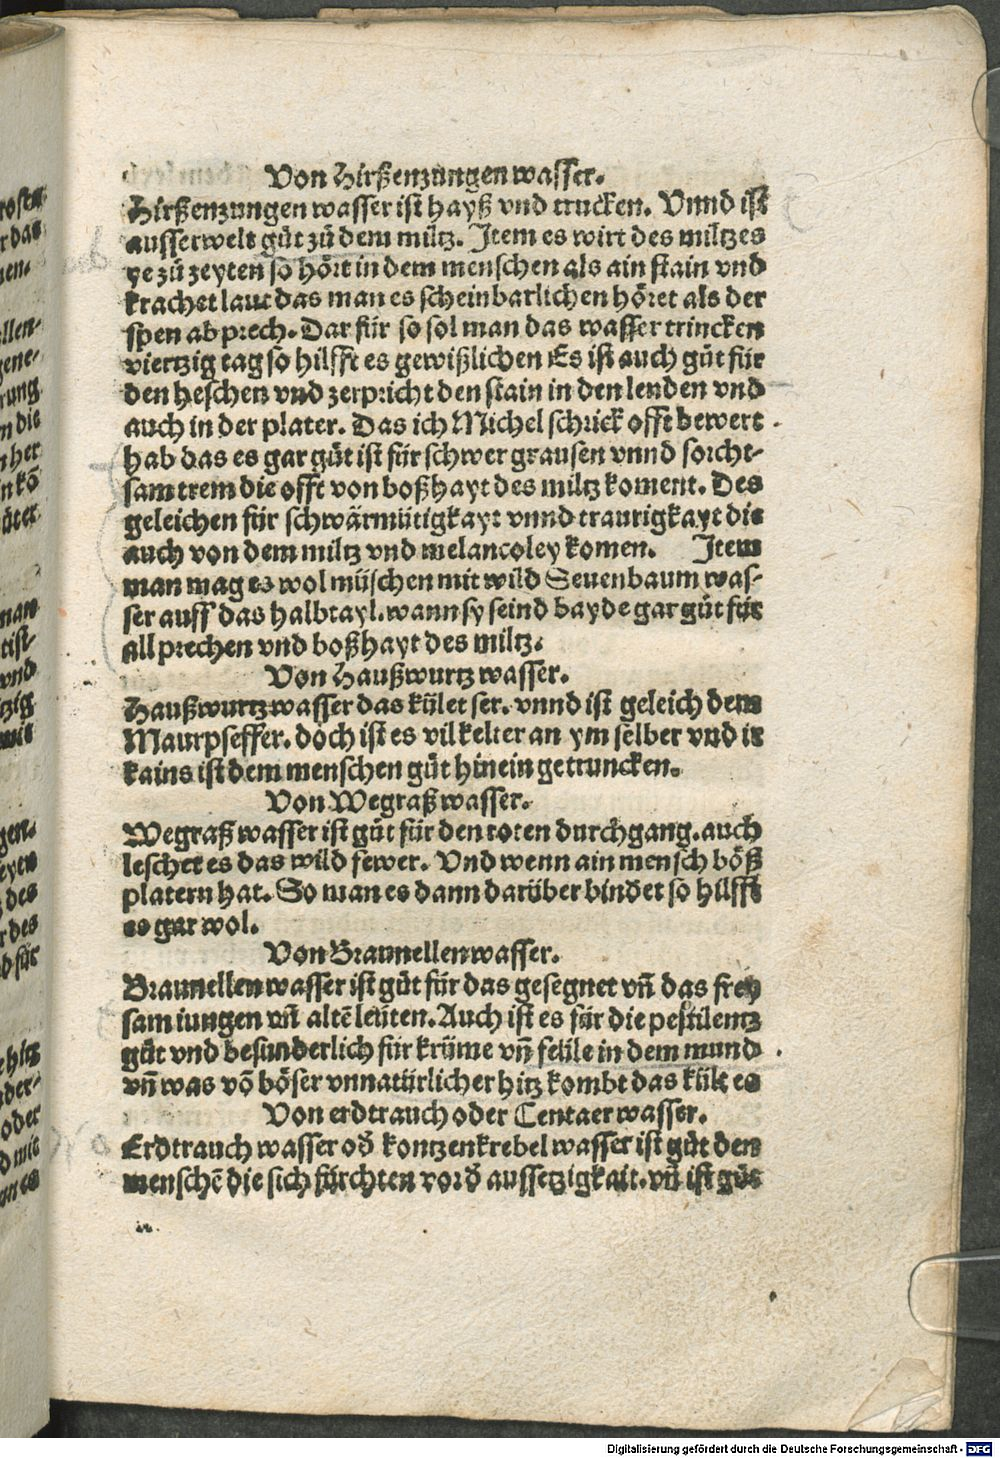 Von Hirßenzungen wasser.
Hirßenzungen wasser ist hayß vnd trucken. Vnnd ist
ausserwelt gůt zů dem miltz. Item es wirt des miltzes
ye zů zeyten so hört in dem menschen als ain stain vnd
krachet laut das man es scheinbarlichen höret als der
spen ab prech. Dar für so sol man das wasser trincken
viertzig tag so hilfft es gewißlichen Es ist auch gůt für
den heschen vnd zerpricht den stain in den lenden vnd
auch in der plater. Das ich Michel schrick offt bewert
hab das es gar gůt ist für schwer grausen vnnd forcht-
sam trem die offt von boßhayt des miltz koment. Des
geleichen für schwärmütigkayt vnnd traurigkayt die
auch von dem miltz vnd melancoley komen. Item
man mag es wol müschen mit wild Seuenbaum was-
ser auff das halbtayl. wann sy seind bayde gar gůt für
all prechen vnd boßhayt des miltz.
Von Haußwurtz wasser.
Haußwurtz wasser das kület ser. vnnd ist geleich dem
Maurpfeffer. doch ist es vil kelter an ym selber vnd ir
kains ist dem menschen gůt hinein getruncken.
Von Wegraß wasser.
Wegraß wasser ist gůt für den roten durchgang. auch
leschet es das wild fewer. Vnd wenn ain mensch böß
platern hat. So man es dann darüber bindet so hilfft
es gar wol.
Von Braunellen wasser.
Braunellen wasser ist gůt für das gesegnet vñ das frey
sam iungen vñ altē leüten. Auch ist es für die pestilentz
gůt vnd besunderlich für krüme vñ felile in dem mund
vñ was vō böser vnnatürlicher hitz kombt das kült es
Von erdtrauch oder Centaer wasser.
Erdtrauch wasser od̕ kontzenkrebel wasser ist gůt den
menschē die sich fürchten vor d̕ aussetzigkait. vñ ist gůt
Digitalisierung gefördert durch die Deutsche Forschungsgemeinschaft - DFG